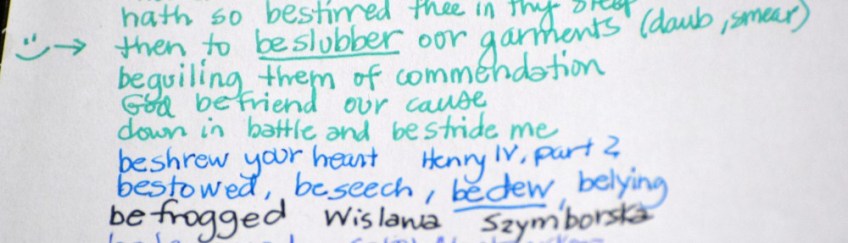 hath so bestirred thee in thy sleep
then to beslubber oor garments (daub, smear)
beguiling them of commendation
God befriend our cause
down in battle and bestride me
beshrew your heart Henry IV, part 2
bestowed, beseech, bedew, belying
befrogged Wislawa Szymborska